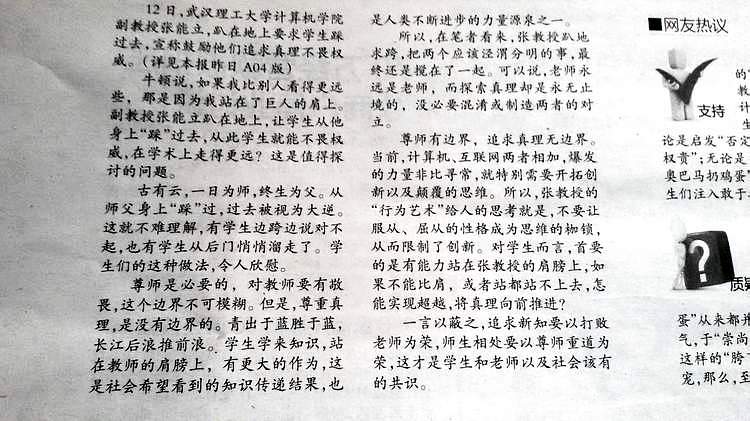 12日，武汉理工大学计算机学院
副教授张能立，趴在地上要求学生踩
过去，宣称鼓励他们追求真理不畏权
威。（详见本报昨日 A04 版）
牛顿说，如果我比别人看得更远
些，那是因为我站在了巨人的肩上。
副教授张能立趴在地上，让学生从他
身上“踩”过去，从此学生就能不畏权
威，在学术上走得更远？这是值得探
讨的问题。
古有云，一日为师，终生为父。从
师父身上“踩”过，过去被视为大逆。
这就不难理解，有学生边跨边说对不
起，也有学生从后门悄悄溜走了。学
生们的这种做法，令人欣慰。
尊师是必要的，对教师要有敬
畏，这个边界不可模糊。但是，尊重真
理，是没有边界的。青出于蓝胜于蓝，
长江后浪推前浪。学生学来知识，站
在教师的肩膀上，有更大的作为，这
是社会希望看到的知识传递结果，也
是人类不断进步的力量源泉之一。
所以，在笔者看来，张教授趴地
求跨，把两个应该泾渭分明的事，最
终还是搅在了一起。可以说，老师永
远是老师，而探索真理却是永无止
境的，没必要混淆或制造两者的对
立。
尊师有边界，追求真理无边界。
当前，计算机、互联网两者相加，爆发
的力量非比寻常，就特别需要开拓创
新以及颠覆的思维。所以，张教授的
“行为艺术”给人的思考就是，不要让
服从、屈从的性格成为思维的枷锁，
从而限制了创新。对学生而言，首要
的是有能力站在张教授的肩膀上，如
果不能比肩，或者站都站不上去，怎
能实现超越，将真理向前推进？
一言以蔽之，追求新知要以打败
老师为荣，师生相处要以尊师重道为
荣，这才是学生和老师以及社会该有
的共识。
■网友热议
支持
的“
教
计
生
论是启发“否定
权贵”；无论是
奥巴马扔鸡蛋”
生们注入敢于
?
质疑
蛋”从来都并
气，于“崇尚
这样的“胯
宠，那么，至